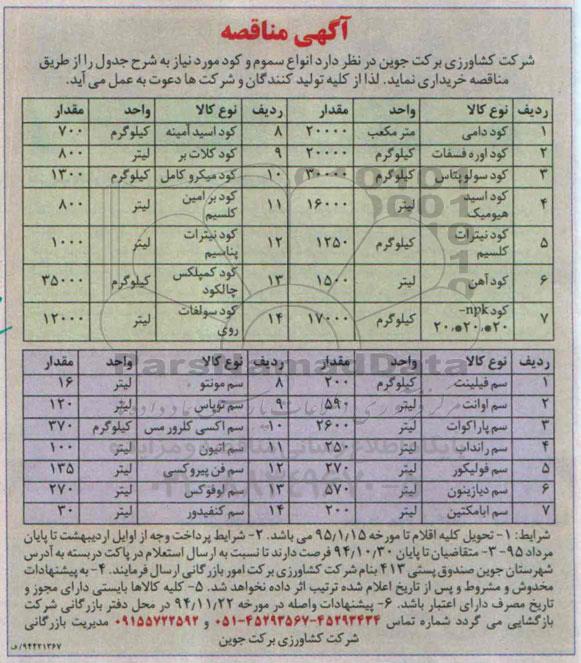 آگهی مناقصه
شرکت کشاورزی برکت جوین در نظر دارد انواع سموم و کود مورد نیاز به شرح جدول را از طریق
مناقصه خریداری نماید. لذا از کلیه تولید کنندگان و شرکت ها دعوت به عمل می آید.
ردیف نوع کالا واحد مقدار ردیف نوع کالا واحد مقدار
۱ کود دامی متر مکعب ۲۰۰۰۰ ۸ کود اسید آمینه کیلوگرم ۷۰۰
۲ کود اوره فسفات کیلوگرم ۲۰۰۰۰ ۹ کود کلات بر لیتر ۸۰۰
۳ کود سولوپتاس کیلوگرم ۳۰۰۰۰ ۱۰ کود میکرو کامل کیلوگرم ۱۳۰۰
۴ کود اسید هیومیک لیتر ۱۶۰۰۰ ۱۱ کود بر امین کلسیم لیتر ۸۰۰
۵ کود نیترات کلسیم کیلوگرم ۱۲۵۰ ۱۲ کود نیترات پتاسیم لیتر ۱۰۰۰
۶ کود آهن لیتر ۱۵۰۰ ۱۳ کود کمپلکس چالکود کیلوگرم ۳۵۰۰۰
۷ کود npk- ۲۰،۲۰،۲۰ کیلوگرم ۱۷۰۰۰ ۱۴ کود سولفات روی لیتر ۱۲۰۰۰
ParsNamadData
ردیف نوع کالا واحد مقدار ردیف نوع کالا واحد مقدار
۱ سم فیلینت کیلوگرم ۲۰۰ ۸ سم مونتو لیتر ۱۶
۲ سم اوانت لیتر ۵۹۰ ۹ سم توپاس لیتر ۱۲۰
۳ سم پاراکوات لیتر ۲۶۰۰ ۱۰ سم اکسی کلرور مس کیلوگرم ۳۷۰
۴ سم رانداپ لیتر ۲۵۰ ۱۱ سم اتیون لیتر ۱۰۰
۵ سم فولیکور لیتر ۲۷۰ ۱۲ سم فن پیروکسی لیتر ۱۳۵
۶ سم دیازینون لیتر ۵۷۰ ۱۳ سم لوفوکس لیتر ۲۷۰
۷ سم ابامکتین لیتر ۲۰۰ ۱۴ سم کنفیدور لیتر ۳۰
شرایط: ۱- تحویل کلیه اقلام تا مورخه ۹۵/۱/۱۵ می باشد. ۲- شرایط پرداخت وجه از اوایل اردیبهشت تا پایان
مرداد ۹۵- ۳- متقاضیان تا پایان ۹۴/۱۰/۳۰ فرصت دارند تا نسبت به ارسال استعلام در پاکت دربسته به آدرس
شهرستان جوین صندوق پستی ۴۱۳ بنام شرکت کشاورزی برکت امور بازرگانی ارسال فرمایند. ۴- به پیشنهادات
مخدوش و مشروط و پس از تاریخ اعلام شده ترتیب اثر داده نخواهد شد. ۵- کلیه کالاها بایستی دارای مجوز و
تاریخ مصرف دارای اعتبار باشد. ۶- پیشنهادات واصله در مورخه ۹۴/۱۱/۲۲ در محل دفتر بازرگانی شرکت
بازگشایی می گردد شماره تماس ۴۵۲۹۳۴۳۴-۴۵۲۹۳۵۶۷-۰۵۱ و ۰۹۱۵۵۷۲۲۵۹۲ مدیریت بازرگانی
شرکت کشاورزی برکت جوین
۹۴۴۲۱۳۶۷/ف